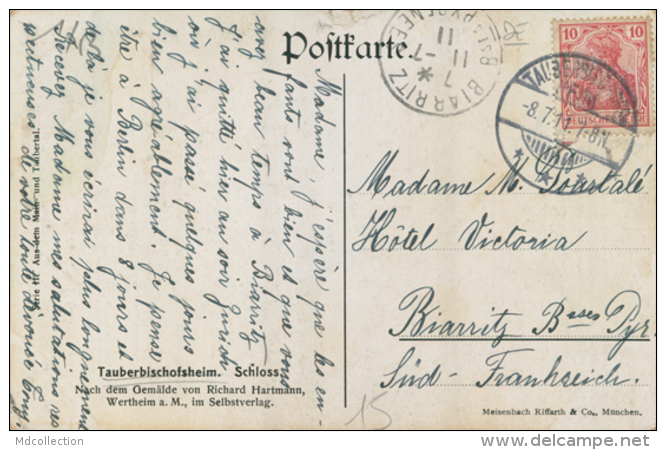 Postkarte.
Madame, j'espère que les en-
fants vont bien et que vous
avez beau temps à Biarritz
J'ai quitté hier au soir Zurich
où j'ai passé quelques jours
bien agréablement. Je pense
être à Berlin dans 8 jours et
de là je vous écrirai plus longuement
Recevez Madame mes salutations res
pectueuses de votre tout dévoué
Madame M.
Hôtel Victoria
Biarritz Bsses Pyr.
Süd-Frankreich.
10 10
DEUTSCHES REICH
TAUBERBISCHOFSHEIM
-8.7.11 7-8N
BIARRITZ
7
11 -7
11
Bses PYRENEES
Tauberbischofsheim. Schloss.
Nach dem Gemälde von Richard Hartmann,
Wertheim a. M., im Selbstverlag.
Serie III Aus dem Main- und Taubertal.
Meisenbach Riffarth & Co., München.
15
Mdcollection
delcampe.net